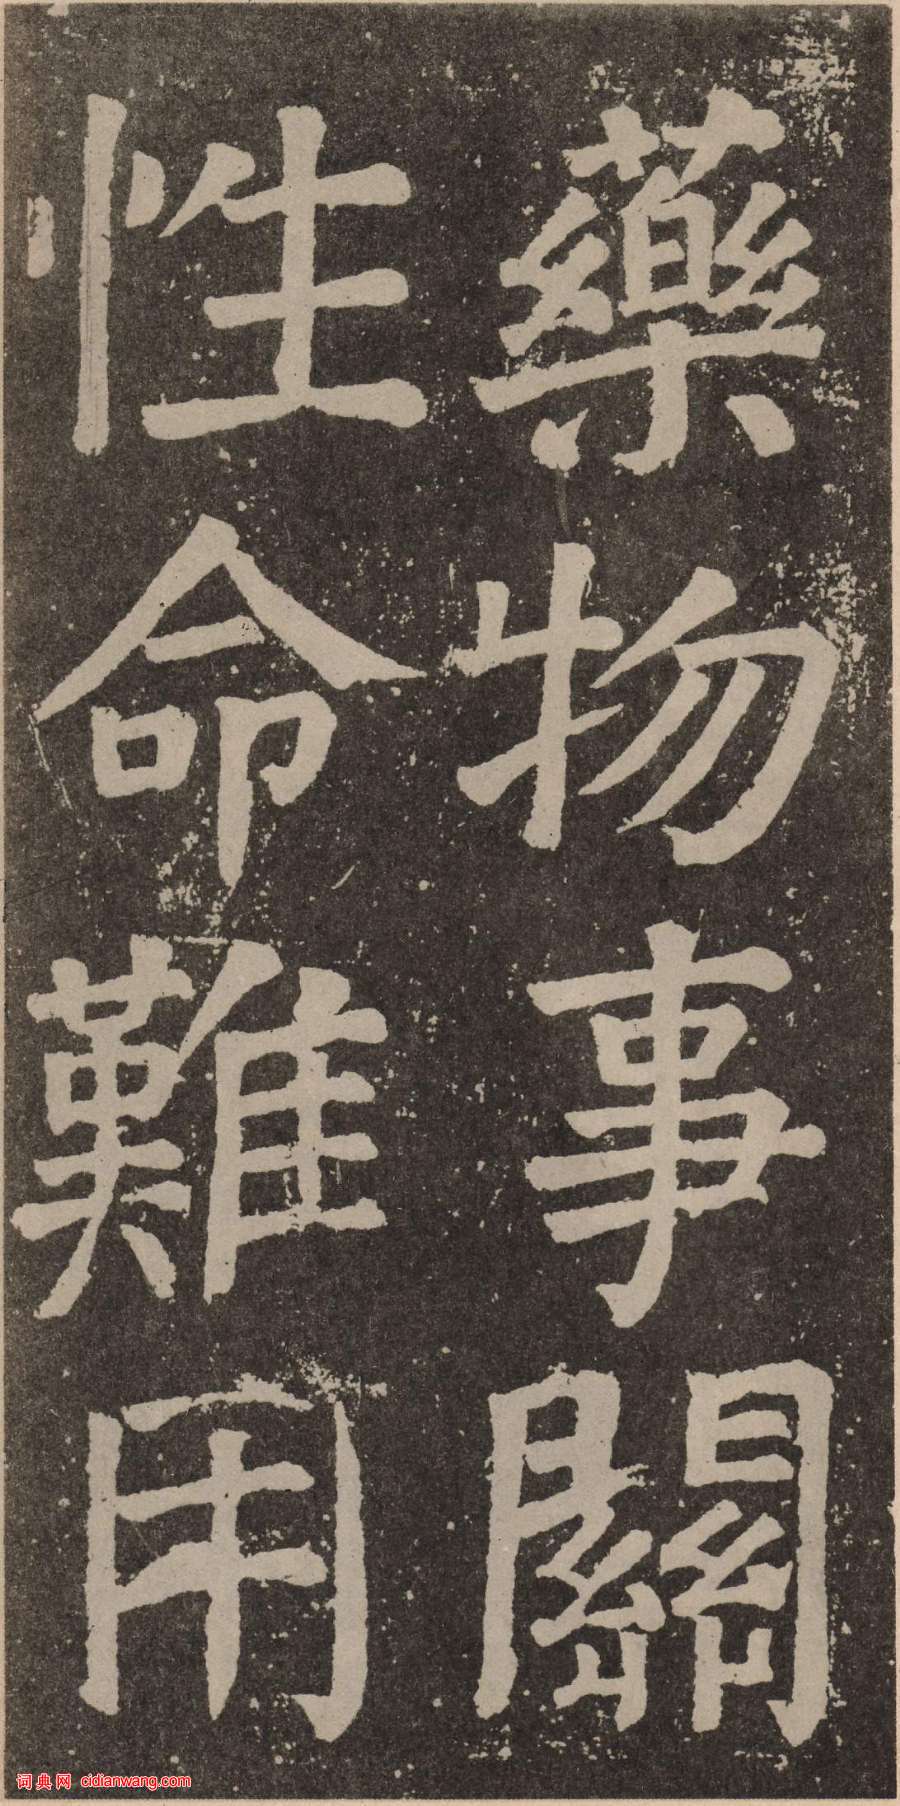 藥物事關
性命難用
词典网 cidianwang.com